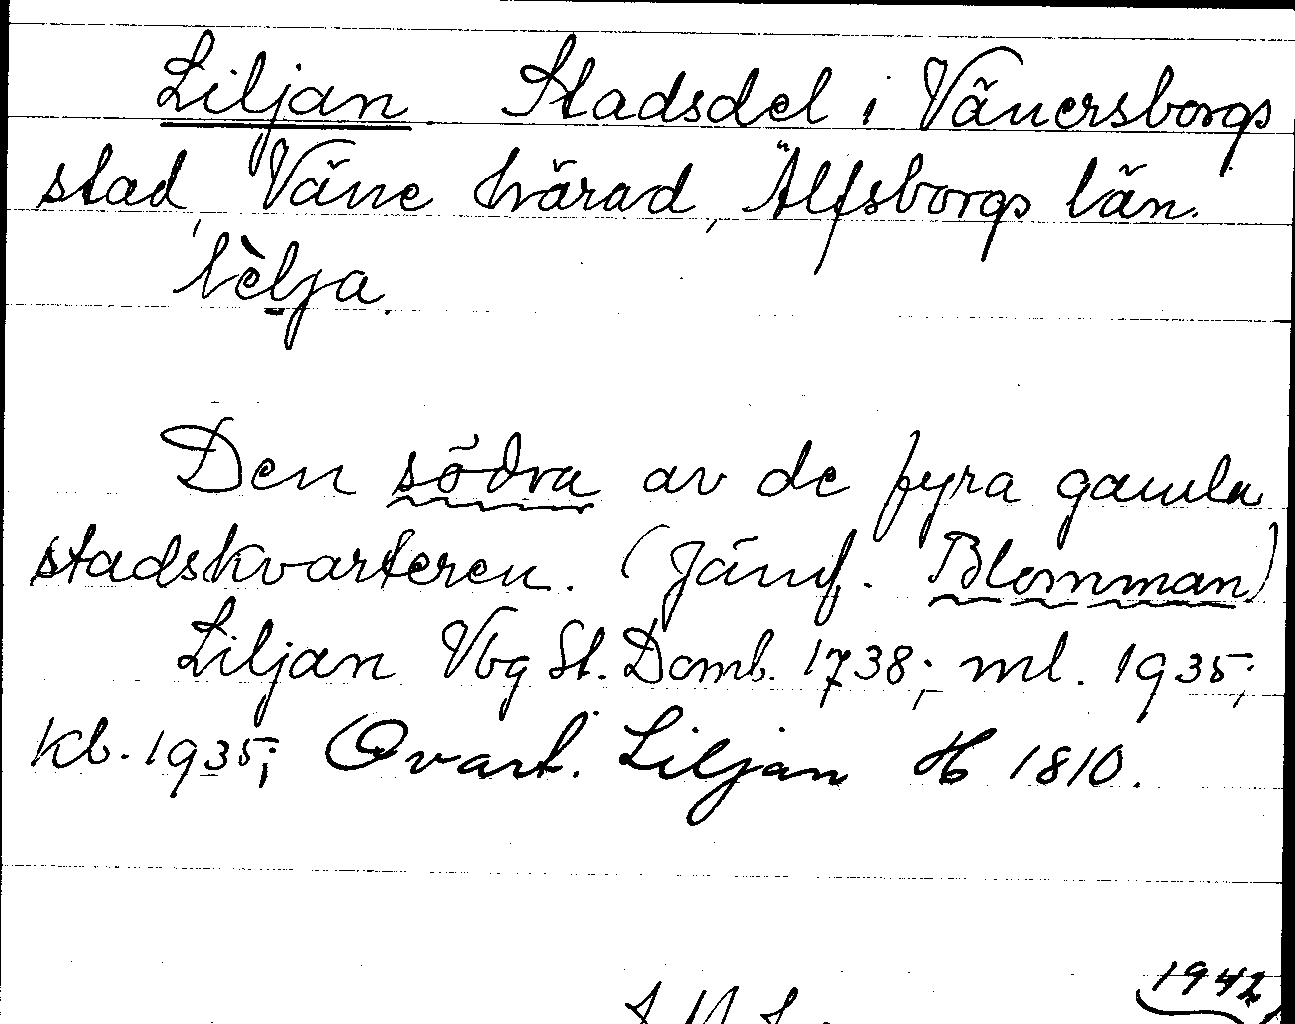 Liljan Stadsdel i Vänersborgs
stad, Väne härad, Älfsborgs län.
lèlja.
Den södra av de fyra gamla
stadskvarteren. (Jämf. Blomman)
Liljan Vbg St. Domb. 1738; ml. 1935;
kb. 1935; Qvart. Liljan H 1810.
1942